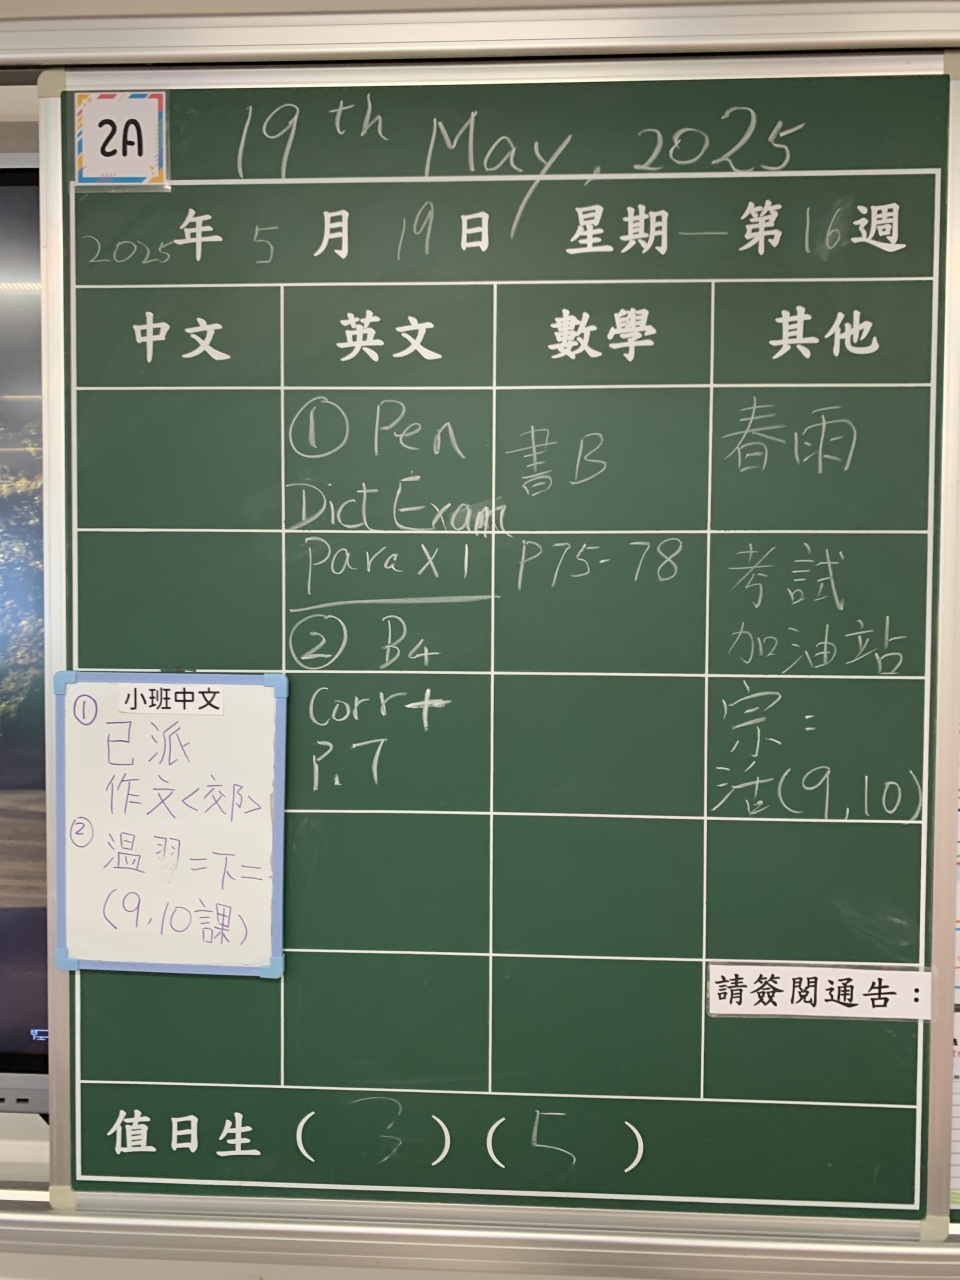 2A
19th May, 2025
2025年5月19日 星期一 第16週
中文 英文 數學 其他
① Pen
Dict Exam
Para X 1
② B4
Corr +
P.7
書B
P75-78
春雨
考試
加油站
宗:
活(9,10)
小班中文
① 已派
作文<郊>
② 溫習=下=
(9,10課)
請簽閱通告:
值日生 ( 3 ) ( 5 )